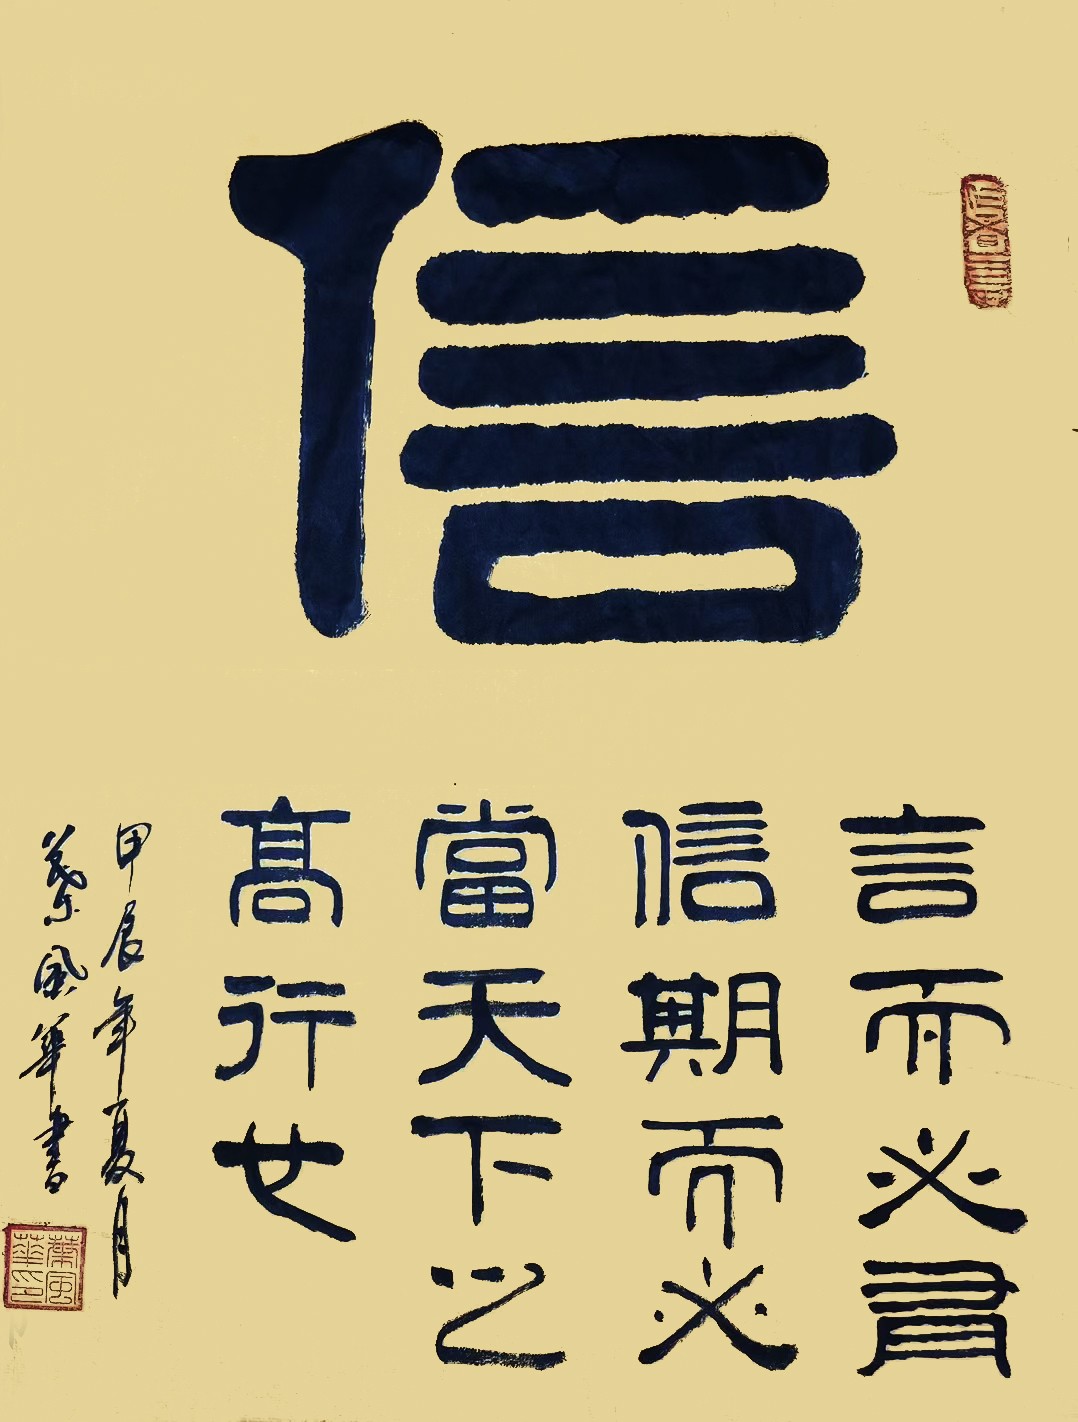 信
言而必有
信期而必
當天下之
高行也
甲辰年夏月
葉風華書
葉風華印